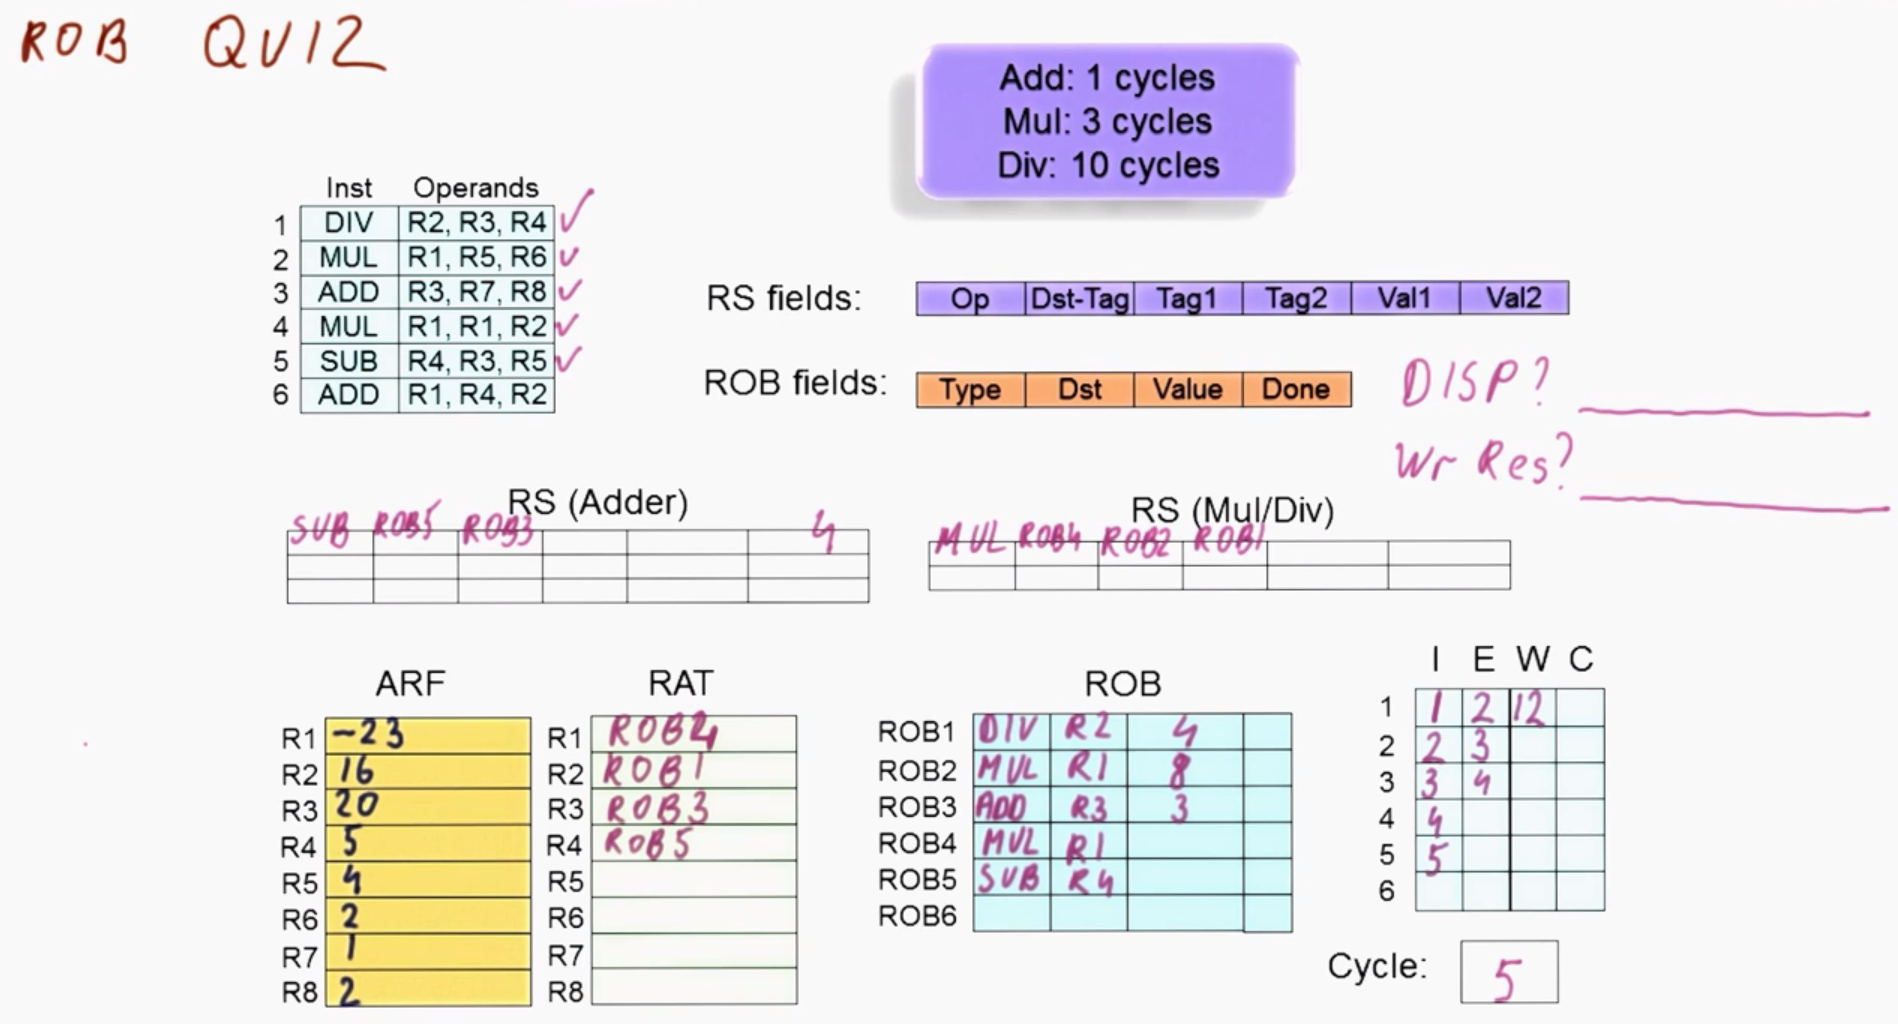 ROB QUIZ
Add: 1 cycles
Mul: 3 cycles
Div: 10 cycles
Inst Operands
1 DIV R2, R3, R4 ✓
2 MUL R1, R5, R6 ✓
3 ADD R3, R7, R8 ✓
4 MUL R1, R1, R2 ✓
5 SUB R4, R3, R5 ✓
6 ADD R1, R4, R2
RS fields: Op Dst-Tag Tag1 Tag2 Val1 Val2
ROB fields: Type Dst Value Done
DISP?
Wr Res?
RS (Adder)
SUB ROB5 ROB3 4
RS (Mul/Div)
MUL ROB4 ROB2 ROB1
ARF
R1 -23
R2 16
R3 20
R4 5
R5 4
R6 2
R7 1
R8 2
RAT
R1 ROB4
R2 ROB1
R3 ROB3
R4 ROB5
R5
R6
R7
R8
ROB
ROB1 DIV R2 4
ROB2 MUL R1 8
ROB3 ADD R3 3
ROB4 MUL R1
ROB5 SUB R4
ROB6
I E W C
1 1 2 12
2 2 3
3 3 4
4 4
5 5
6
Cycle: 5